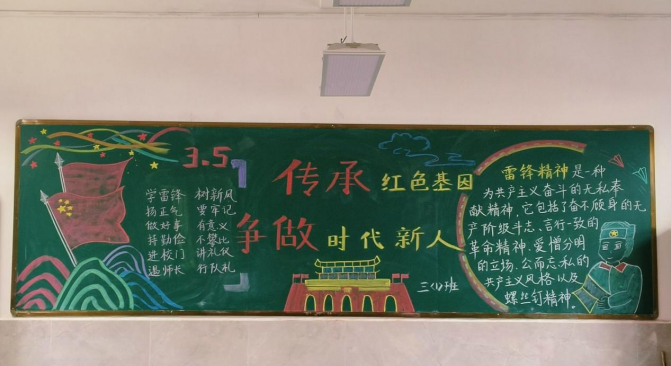 3.5
学雷锋 树新风
扬正气 要牢记
做好事 有意义
持勤俭 不攀比
进校门 讲礼仪
遇师长 行队礼
传承红色基因
争做时代新人
三(1)班
雷锋精神是一种
为共产主义奋斗的无私奉
献精神,它包括了奋不顾身的无
产阶级斗志、言行一致的
革命精神、爱憎分明
的立场、公而忘私的
共产主义风格以及
螺丝钉精神。